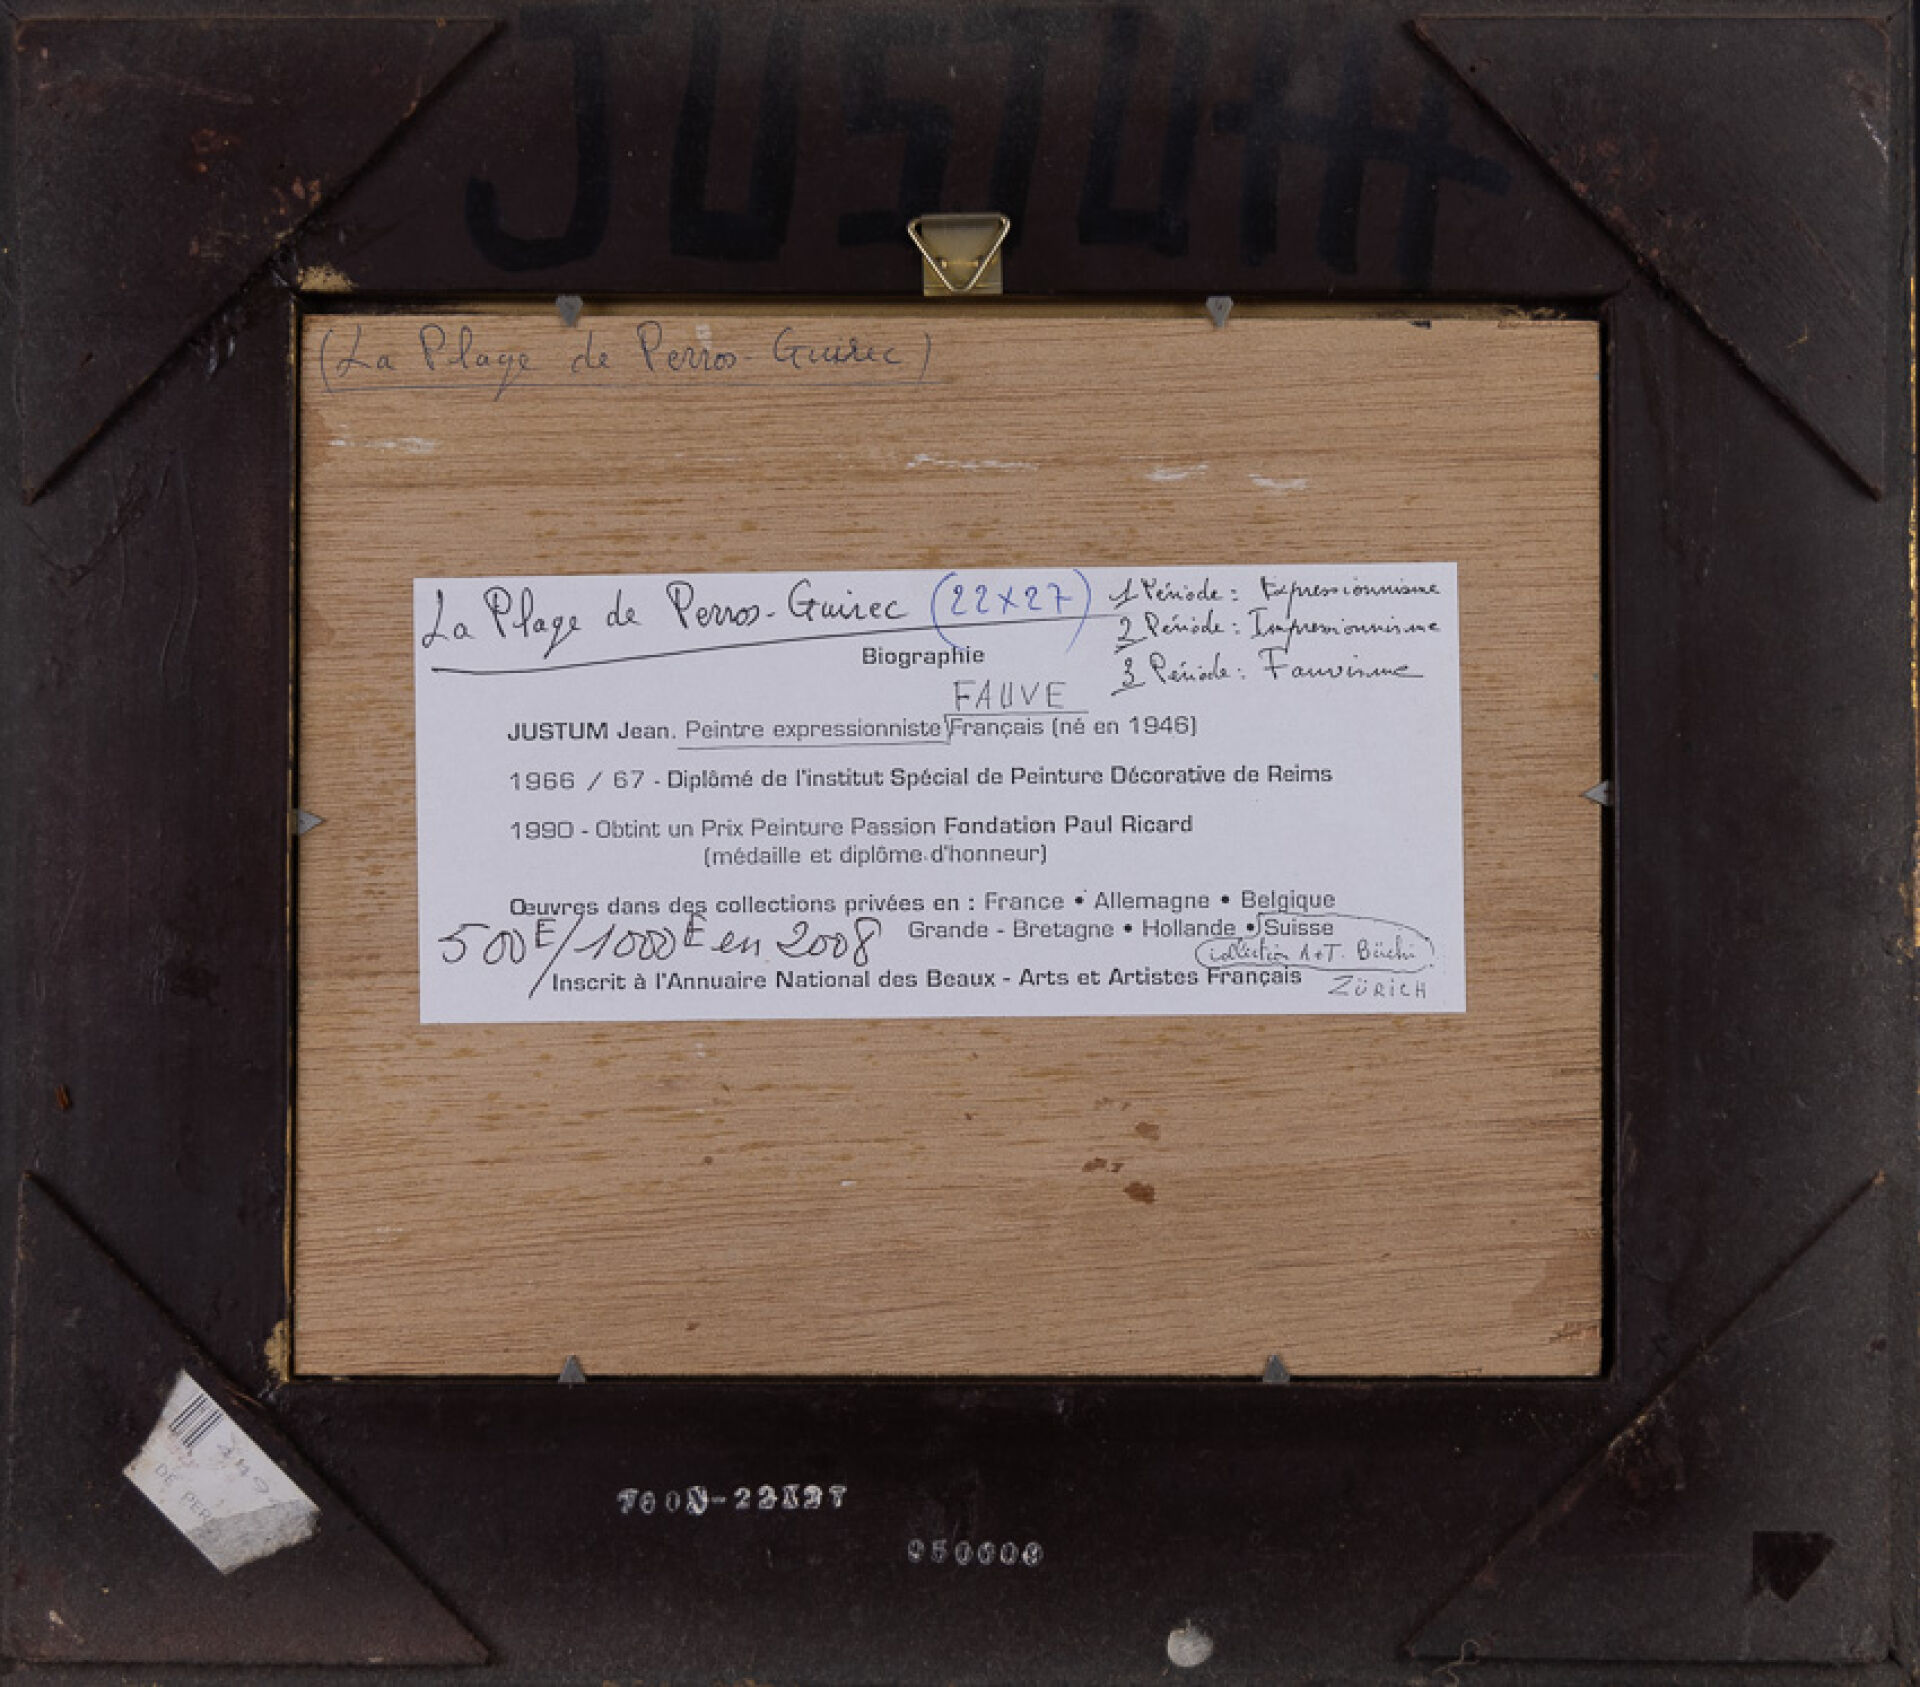 JUSTUM
(La Plage de Perros-Guirec)
La Plage de Perros-Guirec (22x27)
1 Période : Expressionnisme
2 Période : Impressionnisme
3 Période : Fauvisme
Biographie
FAUVE
JUSTUM Jean. Peintre expressionniste Français (né en 1946)
1966 / 67 - Diplômé de l'institut Spécial de Peinture Décorative de Reims
1990 - Obtint un Prix Peinture Passion Fondation Paul Ricard
(médaille et diplôme d'honneur)
Œuvres dans des collections privées en : France • Allemagne • Belgique
Grande - Bretagne • Hollande • Suisse
500E/1000E en 2008
collection A+T. Büchi
Inscrit à l'Annuaire National des Beaux - Arts et Artistes Français
ZÜRICH
DE PER